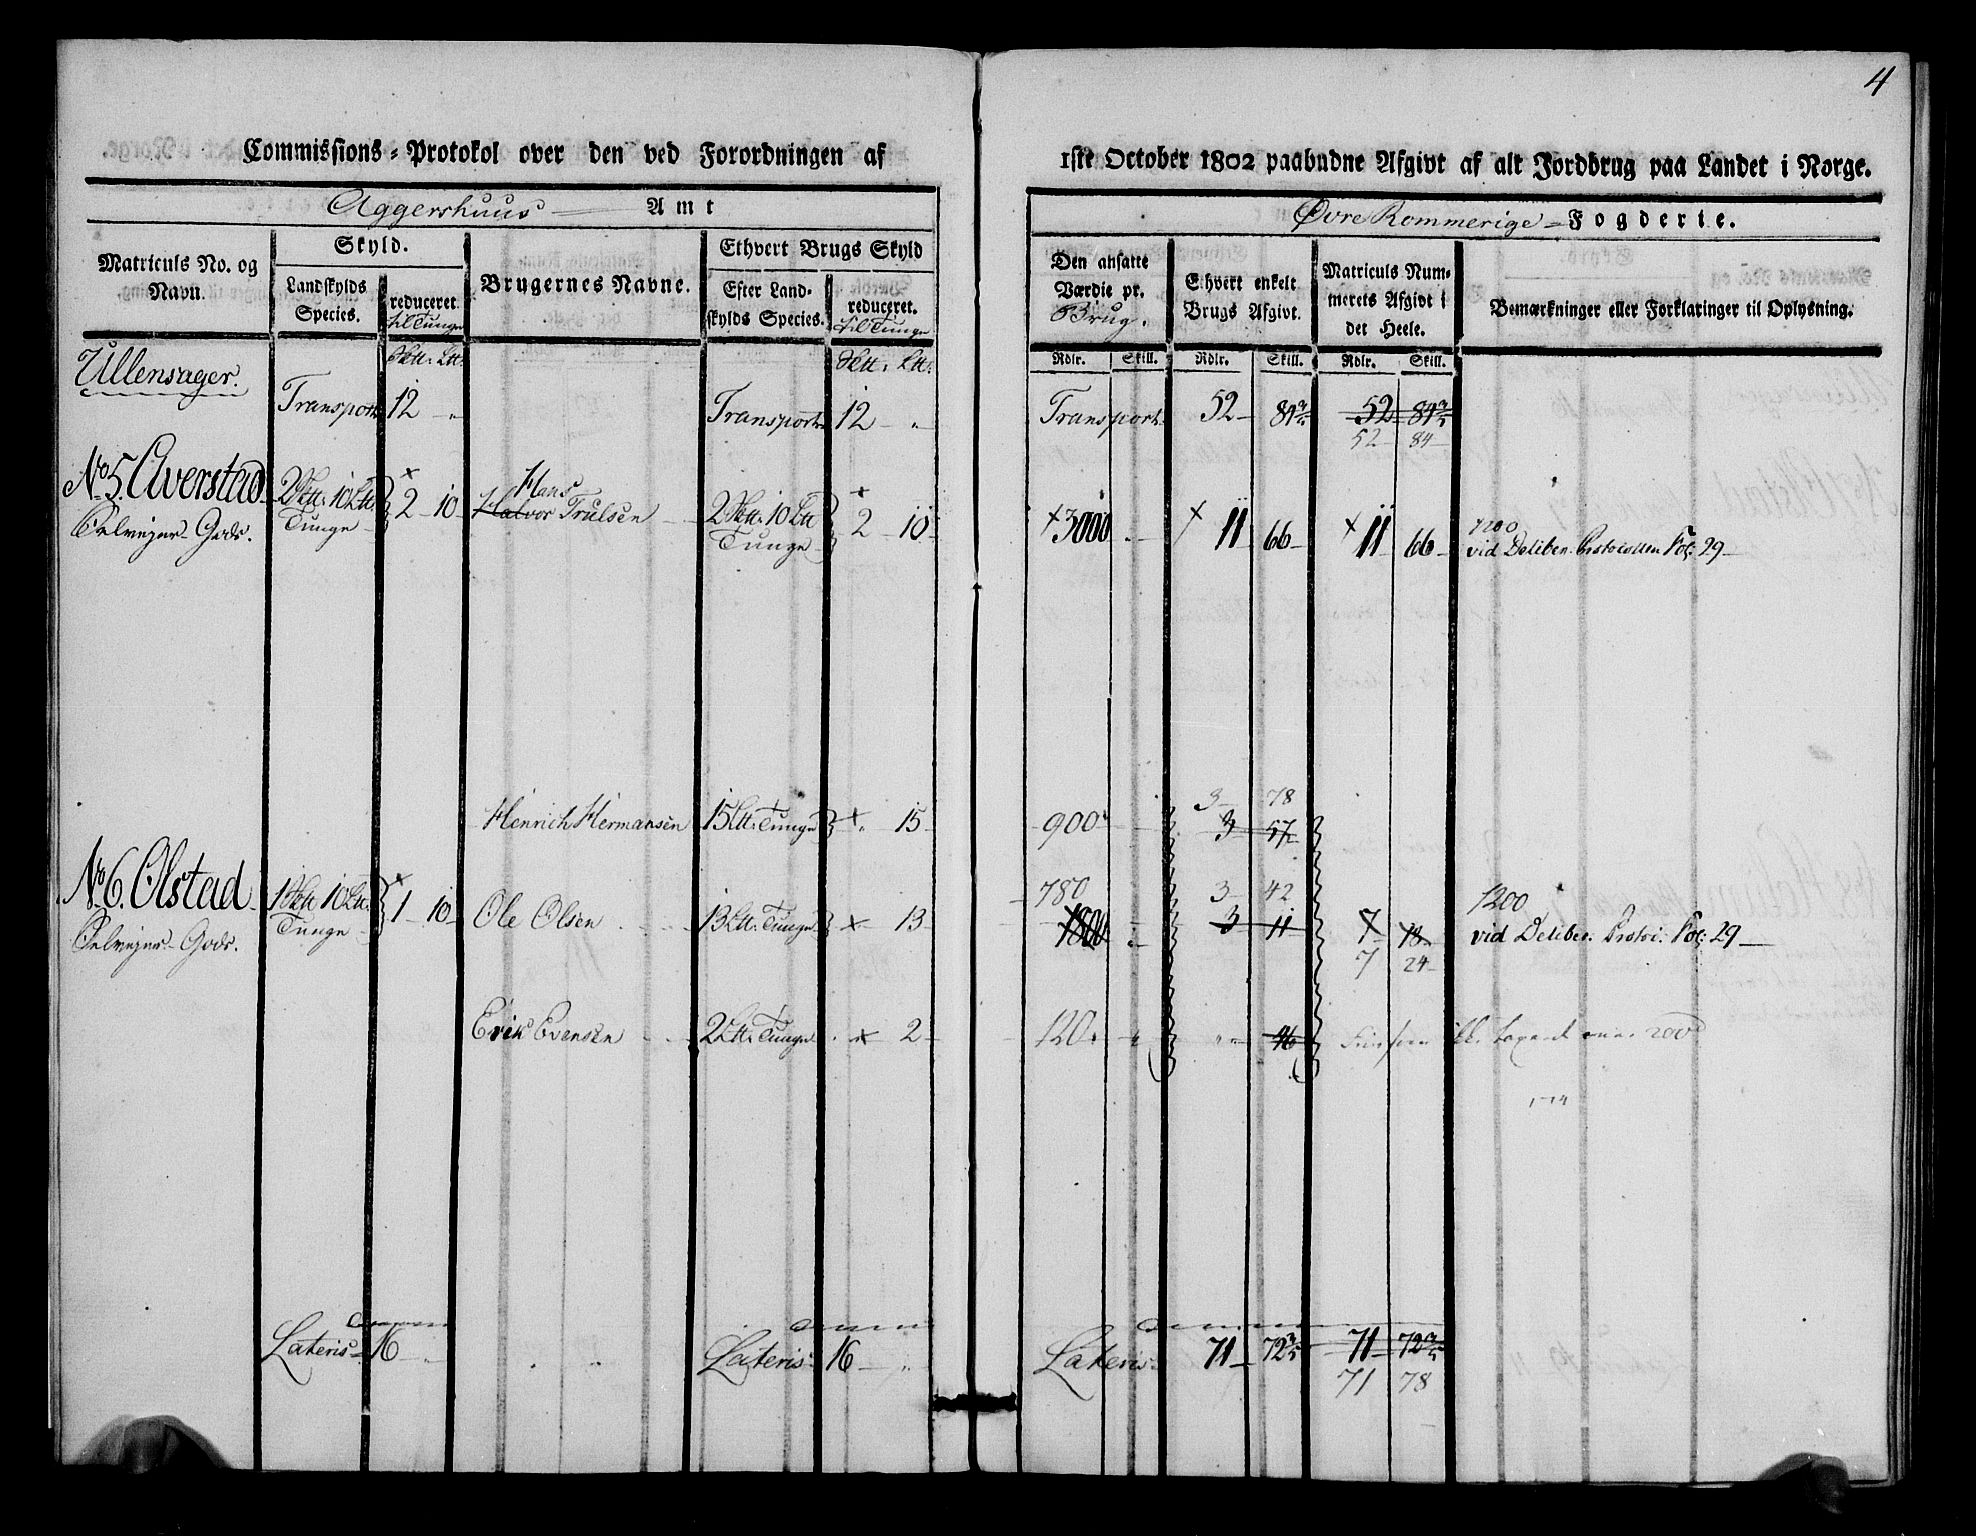 4
Commissions-Protokol over den ved Forordningen af 1ste October 1802 paabudne Afgivt af alt Jordbrug paa Landet i Norge.
Aggershuus Amt
Øvre Rommerige Fogderie.
Matriculs No. og Navn.
Skyld.
Landskylds Species.
reduceret til Tunge
Brugernes Navne.
Ethvert Brugs Skyld
Efter Landskylds Species.
reduceret. til Tunge
Den ansatte Værdie pr. Brug.
Ethvert enkelt Brugs Afgivt.
Matriculs Nummerets Afgivt i det Heele.
Bemærkninger eller Forklaringer til Oplysning.
Rdlr. Skill. Rdlr. Skill. Rdlr. Skill.
Ullensager.
Transport 12 - " Transport 12 - " Transport 52 - 84 52 - 84
52 - 84
No 5. Averstad 2 10 Ltt: Tunge 2 - 10 Hans
Halvor Trulsen 2 10 Ltt Tunge 2 - 10 3000 11 66 11 66
Selvejer-Gods.
1200
vid Deliber. Protocollen Fol: 29
3 - 78
Henrich Hermansen 15 Ltt: Tunge " 15 900 3 57
No 6. Olstad 1 10 Ltt. Tunge 1 - 10
Selvejer-Gods.
780 3 - 42
Ole Olsen 13 Ltt: Tunge 13 1800 3 11 7 18
7 24
1200
vid Deliber. Protoc: Fol: 29
Erik Evensen 2 Ltt: Tunge 2 120 " 46
Lateris 16 " Lateris 16 " Lateris 71 72 71 72
71 78